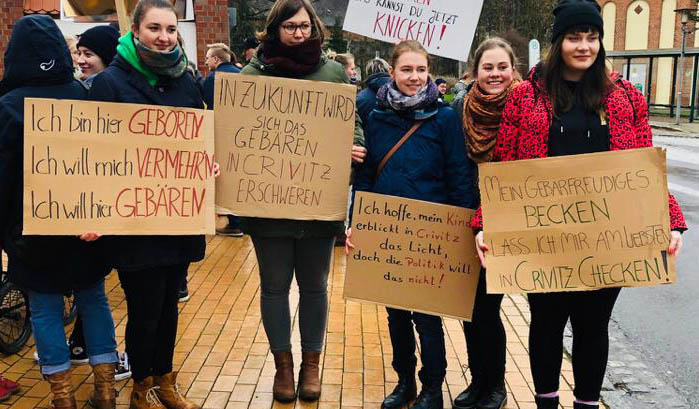 KANNST DU JETZT
KNICKEN!
Ich bin hier GEBOREN
Ich will mich VERMEHRN
Ich will hier GEBÄREN
IN ZUKUNFT WIRD
SICH DAS
GEBÄREN
IN CRIVITZ
ERSCHWEREN
Ich hoffe, mein Kind
erblickt in Crivitz
das Licht,
doch die Politik will
das nicht!
MEIN GEBÄRFREUDIGES
BECKEN
LASS ICH MIR AM LIEBSTEN
IN CRIVITZ CHECKEN!